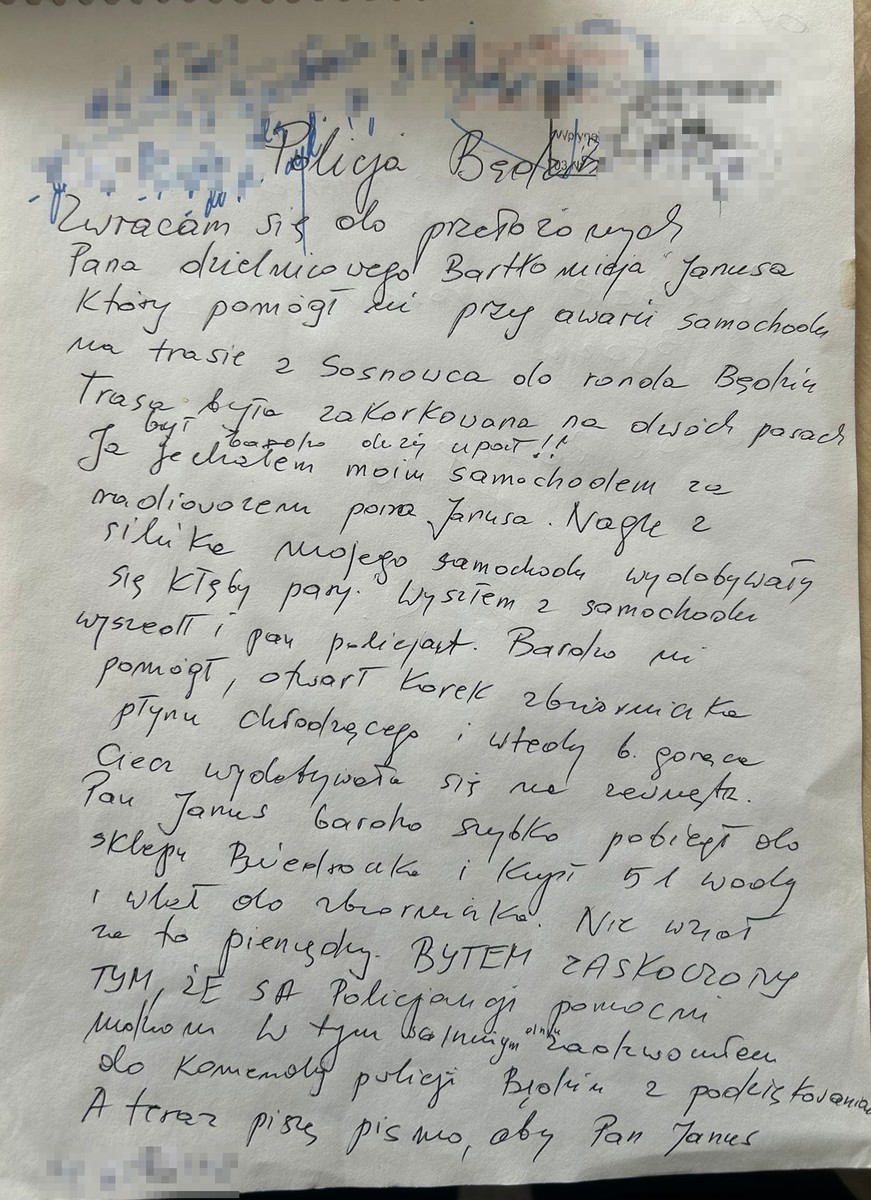 Policja Będzin
Wpłynę
Zwracam się do przełożonych
Pana dzielnicowego Bartłomieja Janusa
Który pomógł mi przy awarii samochodu
na trasie z Sosnowca do ronda Będzin
Trasa była zakorkowana na dwóch pasach
był bardzo duży upał!!
Ja jechałem moim samochodem za
radiowozem pana Janusa. Nagle z
silnika mojego samochodu wydobywały
się kłęby pary. Wyszłem z samochodu
wyszedł i pan policjant. Bardzo mi
pomógł, otwarł korek zbiorniaka
płynu chłodzącego i wtedy b. gorąca
Ciecz wydobywała się na zewnątz.
Pan Janus bardzo szybko pobiegł do
sklepu Biedronka i kupił 5 l wody
i wlał do zbiorniaka. Nie wziął
za to pieniędzy. BYŁEM ZASKOCZONY
TYM, ŻE SĄ Policjanci pomocni
W tym samym dniu zadzwoniłem
do komendy policji Będzin z podziękowaniem
A teraz piszę pismo, aby Pan Janus